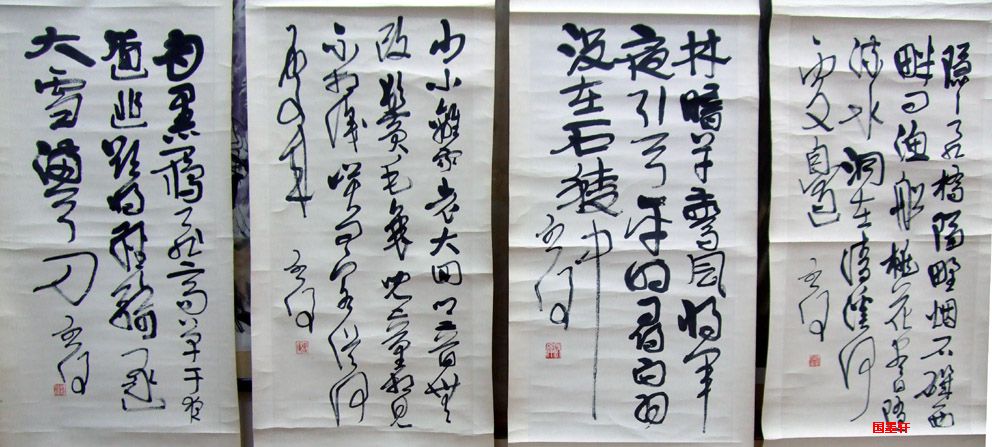 隐隐飞桥隔野烟石矶西
畔问渔船桃花尽日随
流水洞在清溪何
林暗草惊风将军
夜引弓平明寻白羽
没在石棱中
少小离家老大回乡音无
改鬓毛衰儿童相见
不相识笑问客从何
处来
月黑雁飞高单于夜
遁逃欲将轻骑逐
大雪满弓刀
国墨轩